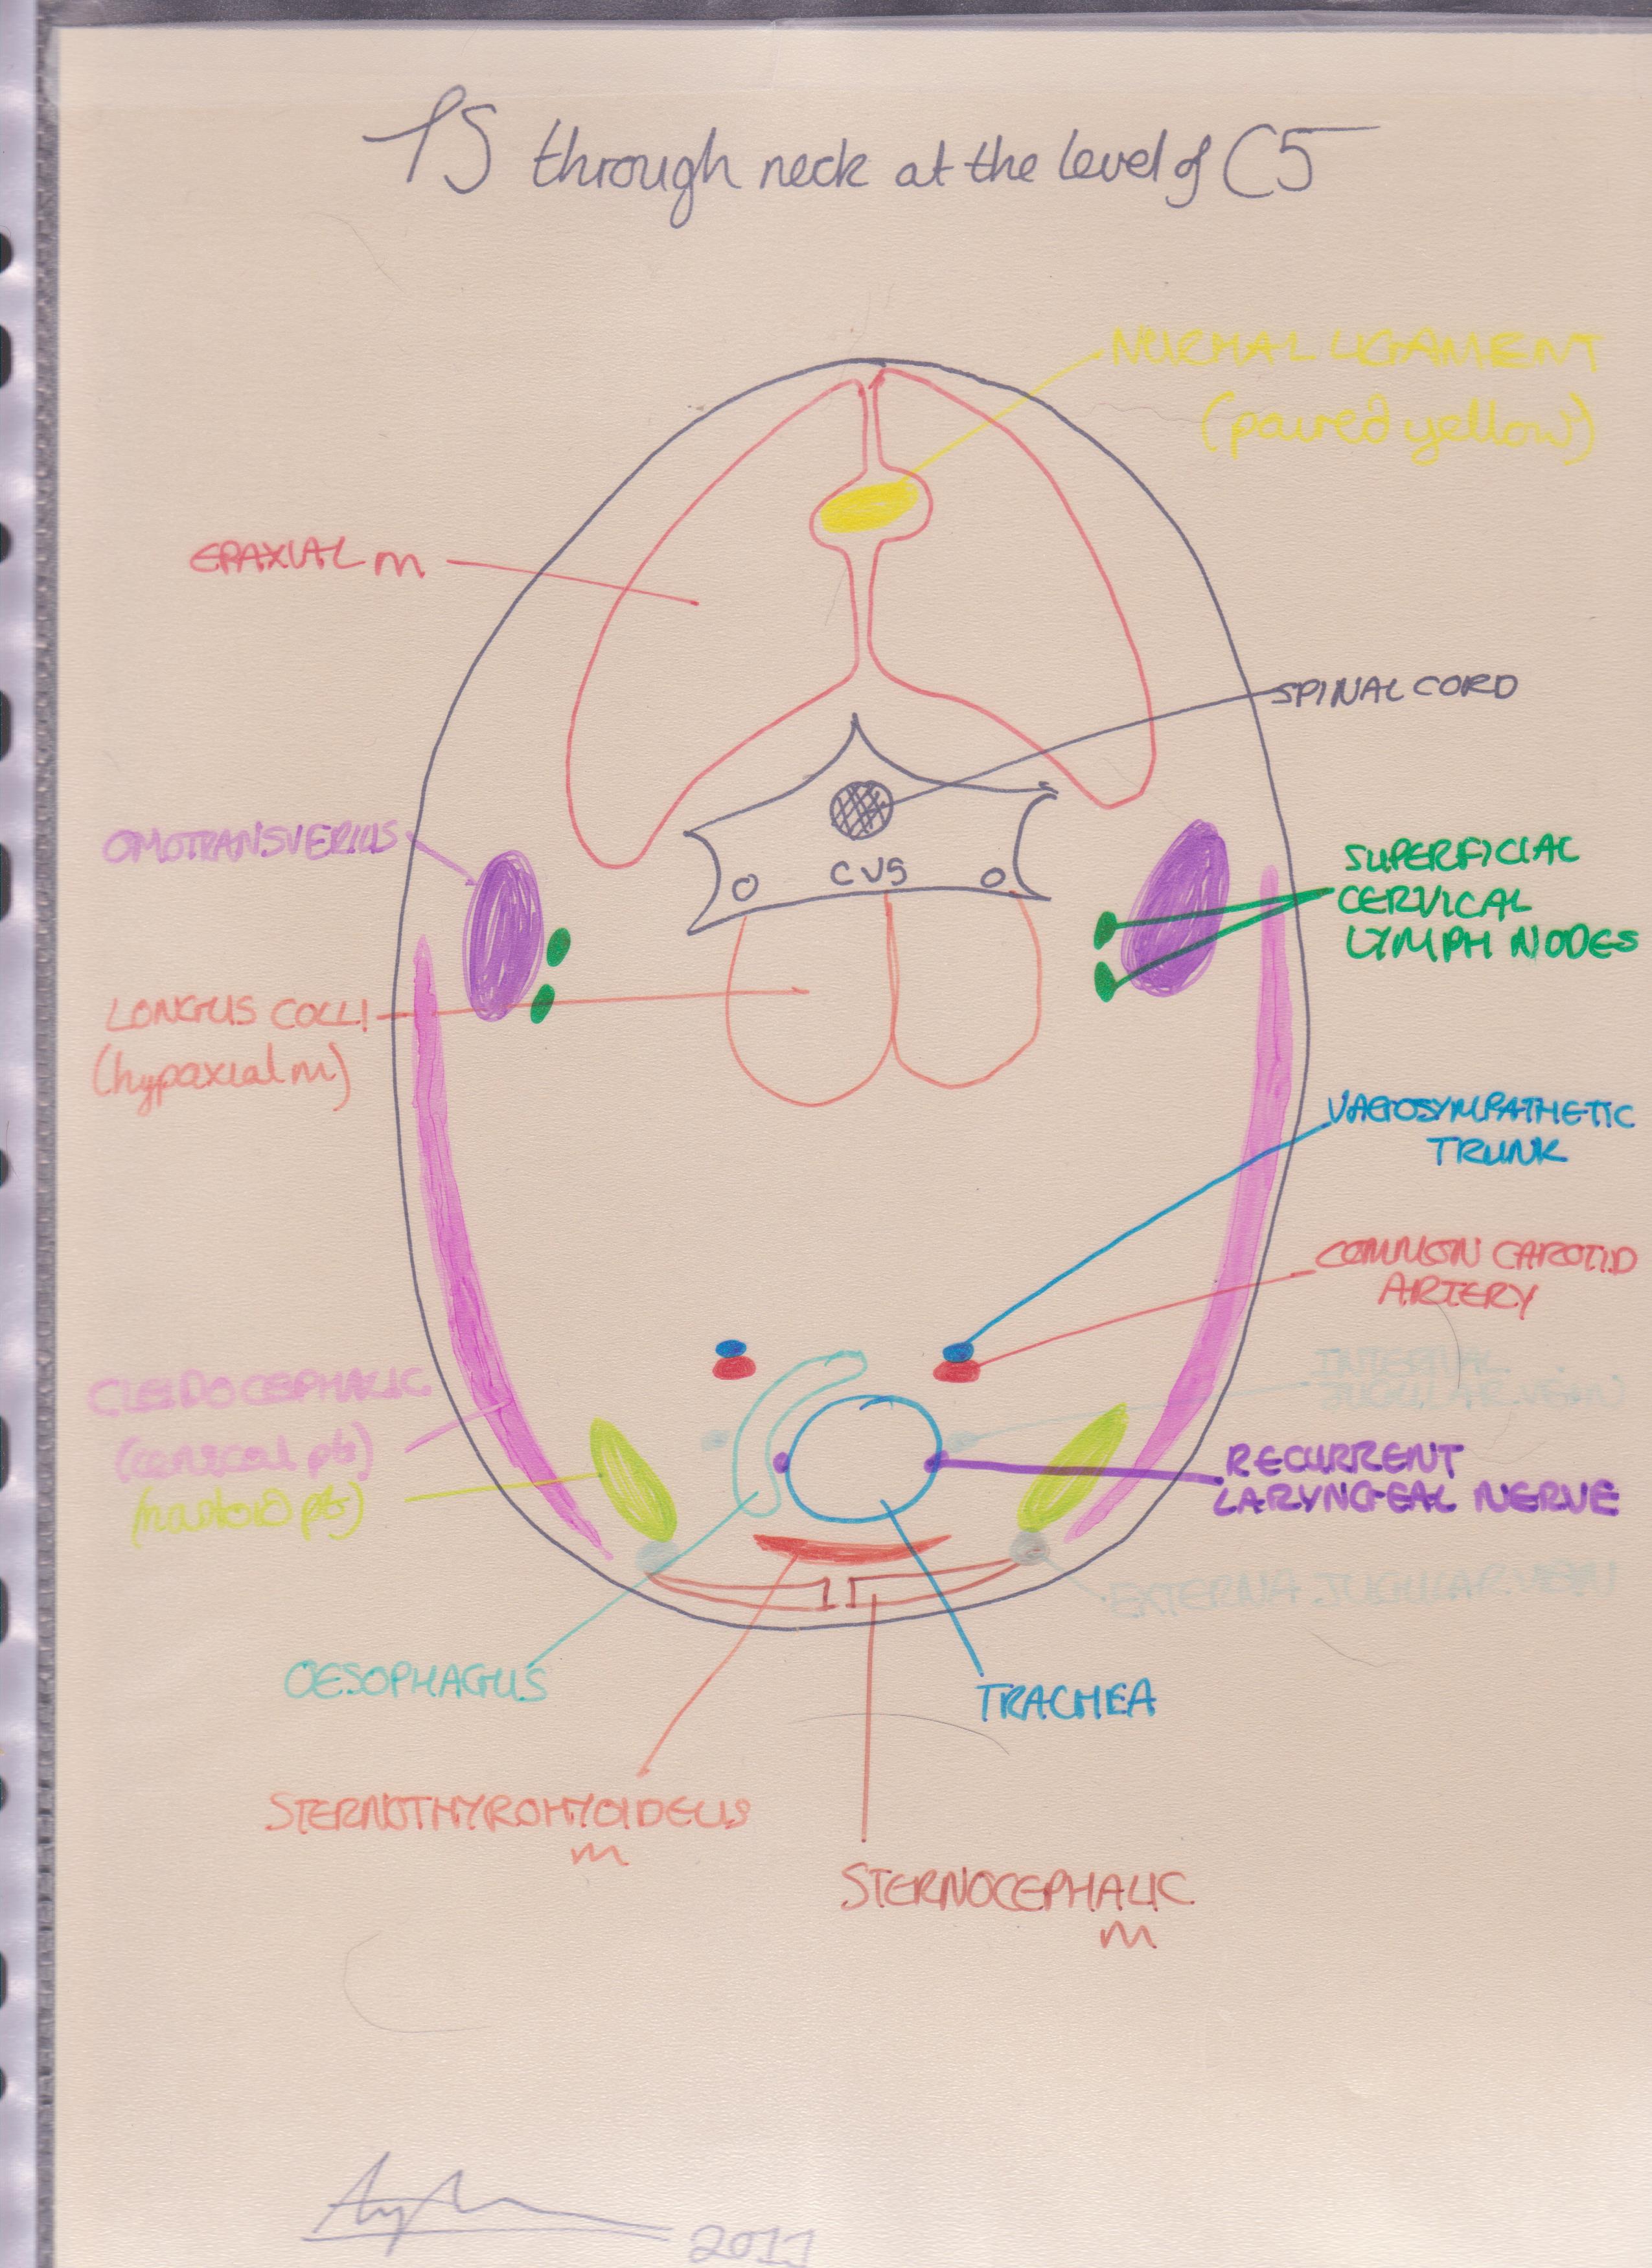 TS through neck at the level of C5
NUCHAL LIGAMENT
(paired yellow)
EPAXIAL m
SPINAL CORD
OMOTRANSVERIUS
CV5
SUPERFICIAL
CERVICAL
LYMPH NODES
LONGUS COLLI
(hypaxial m)
VAGOSYMPATHETIC
TRUNK
COMMON CAROTID
ARTERY
INTERNAL
JUGULAR VEIN
CLEIDOCEPHALIC
(cervical pt)
(mastoid pt)
RECURRENT
LARYNGEAL NERVE
EXTERNAL JUGULAR VEIN
OESOPHAGUS
TRACHEA
STERNOTHYROHYOIDEUS
m
STERNOCEPHALIC
m
2011